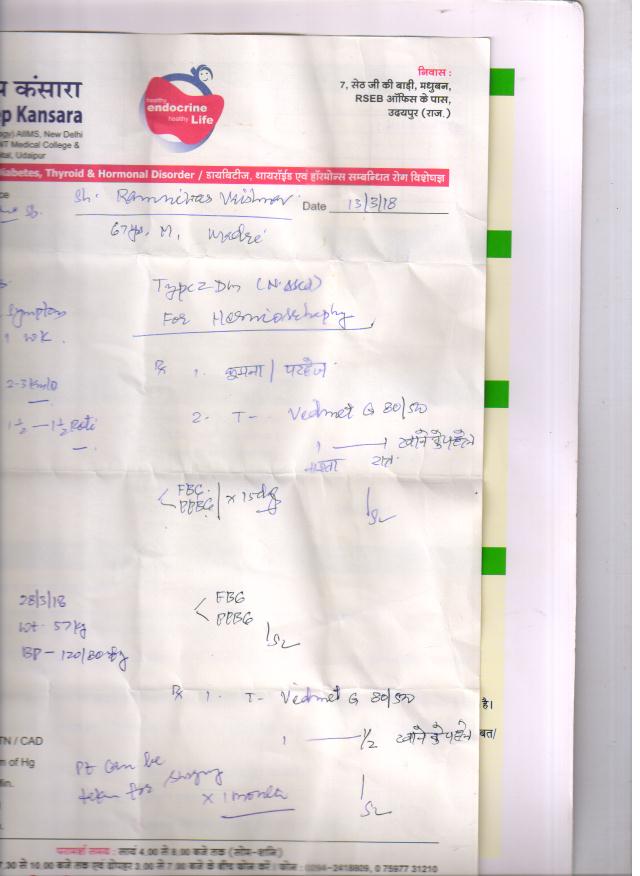 य कंसारा
p Kansara
ogy) AIIMS, New Delhi
NT Medical College &
ital, Udaipur
healthy
endocrine
healthy Life
निवास :
7, सेठ जी की बाड़ी, मधुबन,
RSEB ऑफिस के पास,
उदयपुर (राज.)
iabetes, Thyroid & Hormonal Disorder / डायबिटीज, थायरॉईड एवं हॉरमोन्स सम्बन्धित रोग विशेषज्ञ
Sh. Ramnivas Vaishnav Date 13/3/18
67 yr. M,
Type 2 Dm
Symptom
1 wk.
For
Rx 1. घूमना / परहेज
2-3 Km/D
2- T- Vedmet G 80/500
1½ — 1½ Roti
1 — 1 खाने से पहले
नाश्ता रात
FBG
PPBG x 15 day
28/3/18
FBG
Wt. 57 kg
PPBG
BP - 120/80
Rx 1. T- Vedmet G 80/500
है।
1 — 1/2 खाने से पहले
TN / CAD
m of Hg
Pt can be
taken for surgery
x 1 month
परामर्श समय : सायं 4.00 से 8.00 बजे तक (सोम-शनि)
7.30 से 10.00 बजे तक एवं दोपहर 3.00 से 7.00 बजे के बीच फोन करें। फोन : 0294-2418809, 0 75977 31210